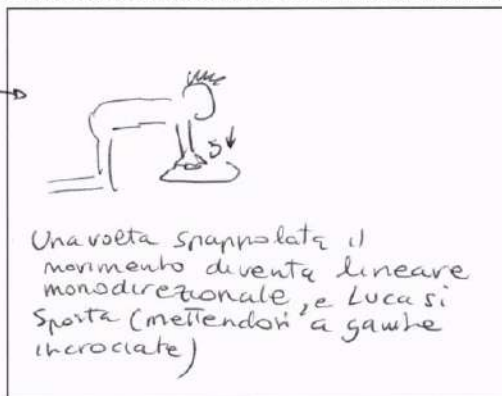 Una volta spappolata il
movimento diventa lineare
monodirezionale, e Luca si
sposta (mettendosi a gambe
incrociate)